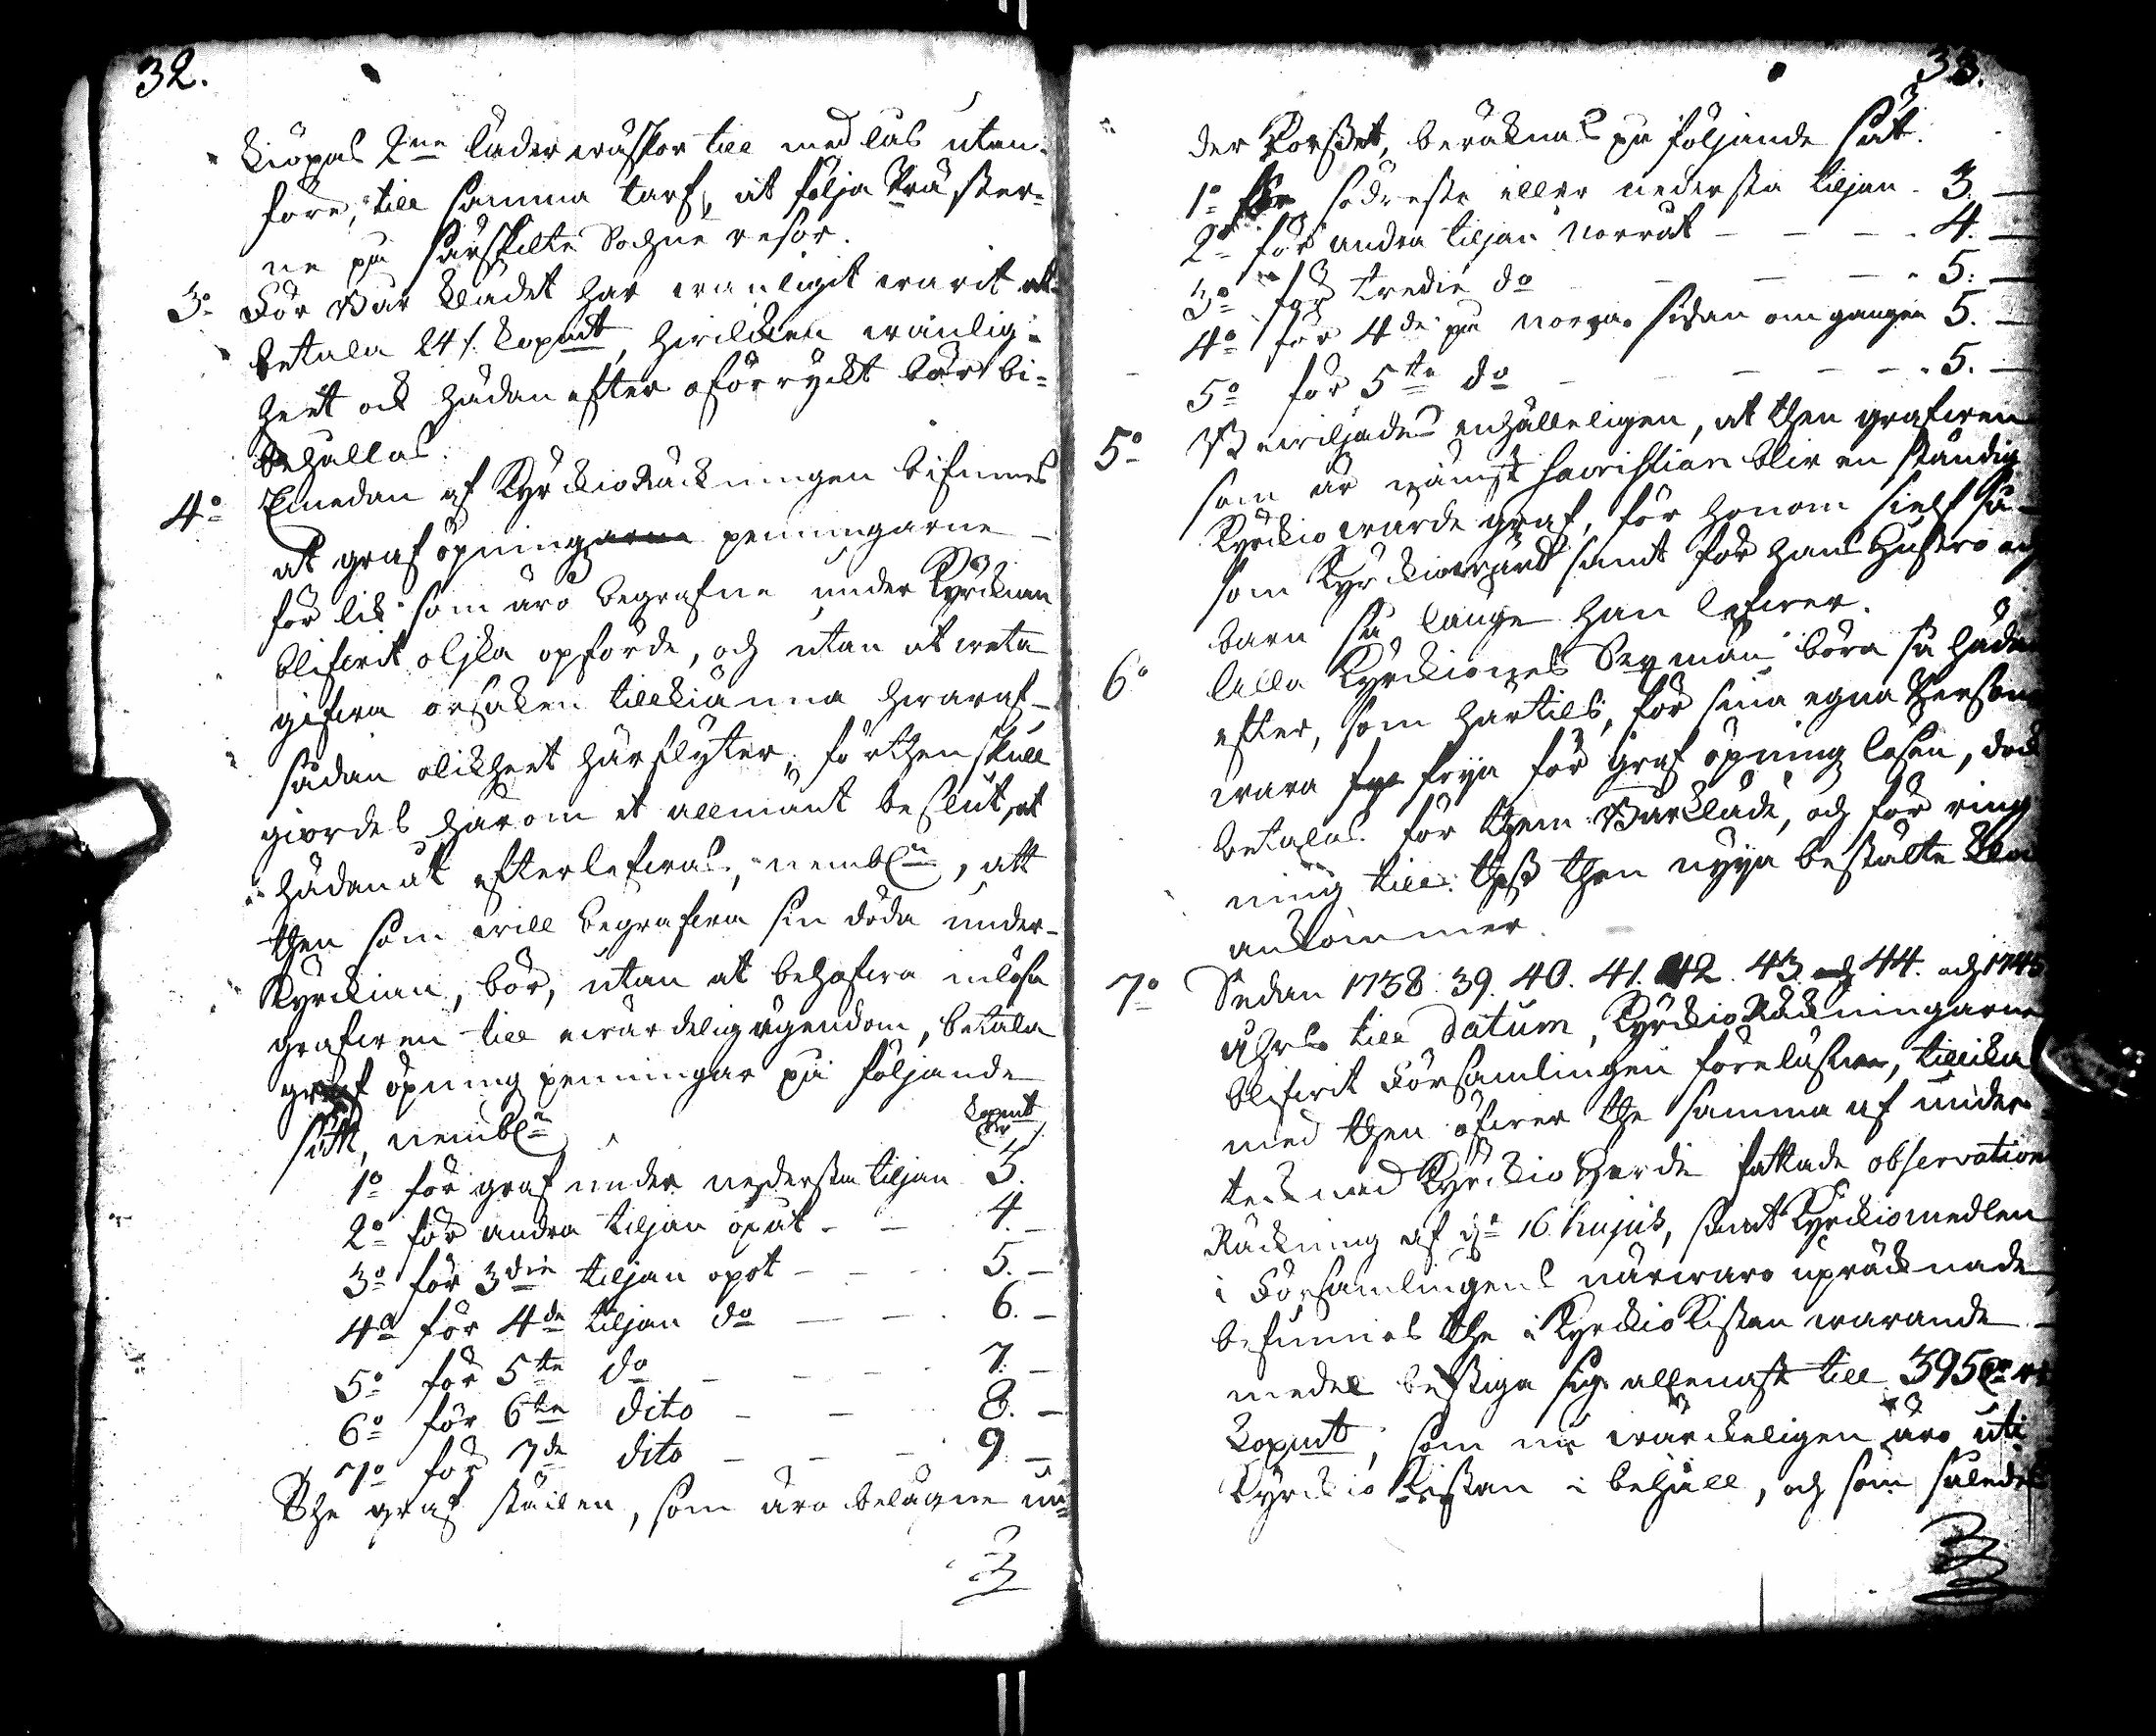 32.
kiöpas 2ne läder wäskor till med lås uten-
före, till samma tarf, at följa Präster-
ne på särskilte Sockne resor.
3o För Bår klädet har wanligit warit at
betala 24 /. kopmt, hwilcken wanlig-
heet ock hädan efter oförryckt bör bi-
behållas.
4o Emedan af KyrckioRäckningen befinnes
at graf öpning penningarne
för lik som äro begrafne under Kyrckian
blifwit olika opförde, och utan at weta
gifwa orsaken tillkiänna hwaraf
sådan olikheet härflyter, för then skull
giordes härom et allmänt beslut, at
hädanåt efterlefwas, nembln, att
then som will begrafwa sin döda under
Kyrckian, bör, utan at behöfwa inlösa
grafwen till ewärdelig ägendom, betala
graf öpning penningar på följande
sätt, nembln kopmt
1o för graf under nedersta tiljan 3.
2o för andra tiljan opåt - - 4. -
3o för 3die tiljan opåt - - 5. -
4o för 4de tiljan do - - 6. -
5o för 5te do - - - 7. -
6o för 6te dito - - 8. -
7o för 7de dito - - - 9. -
The graf ställen, som äro belägne un-
33.
der Korset, beräknas på följande sät.
1o för södreste eller nedersta tiljan - 3. -
2o för andra tiljan norrut - - - 4. -
3o för tredie do - - - 5. -
4o för 4de på norra sidan om gången 5. -
5o för 5te do - - - - - 5. -
5o Bewiljades enhälleligen, at then grafwen
som är näst Sacristian blir en ständig
Kyrckiowärde graf, för honom sielf så-
som Kyrckiowärd samt för hans Hustro och
barn så länge han lefwer.
6o Alla Kyrckiones Sexmän böra så hädan
efter, som härtils, för sina egna Person
wara frya för graf öpning lösen, dock
betalas för them Bårkläde, och för ring
ning till thess then nyya bestälte
ankommer.
7o Sedan 1738. 39. 40. 41. 42. 43. 44. och 1745
åhrs till datum, KyrckioRäckningarne
blifwit Församlingen föreläsne, tillika
med then öfwer the samma af under
tecknad Kyrckio Herde fattade observation
Räckning af d. 16 hujus, samt Kyrckiomedlen
i Församlingens närwaro upräcknade
befunnos the i Kyrckio Kistan warande
medel bestiga sig allenast till 395
kopmt, som nu wärckeligen äro uti
Kyrckio Kistan i behåll, och som således